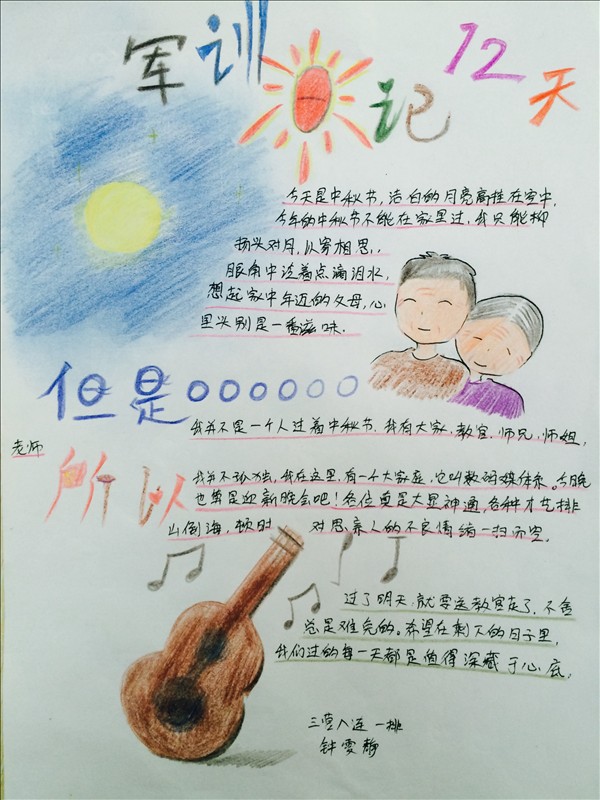 军训日记 12天
今天是中秋节，洁白的月亮高挂在空中，
今年的中秋节不能在家里过，我只能抑
扬头对月，以寄相思，
眼角中泛着点滴泪水，
想起家中年迈的父母，心
里头别是一番滋味.
但是oooooo
我并不是一个人过着中秋节.我有大家，教官.师兄.师姐，
老师
所以
我并不孤独，我在这里，有一个大家庭，它叫数码媒体系。今晚
也算是迎新晚会吧！各位真是大显神通，各种才艺排
山倒海，顿时 对思亲人的不良情绪一扫而空。
过了明天，就要送教官走了，不舍
总是难免的。希望在剩下的日子里，
我们过的每一天都是值得深藏于心底，
三营八连 一排
钟雯静